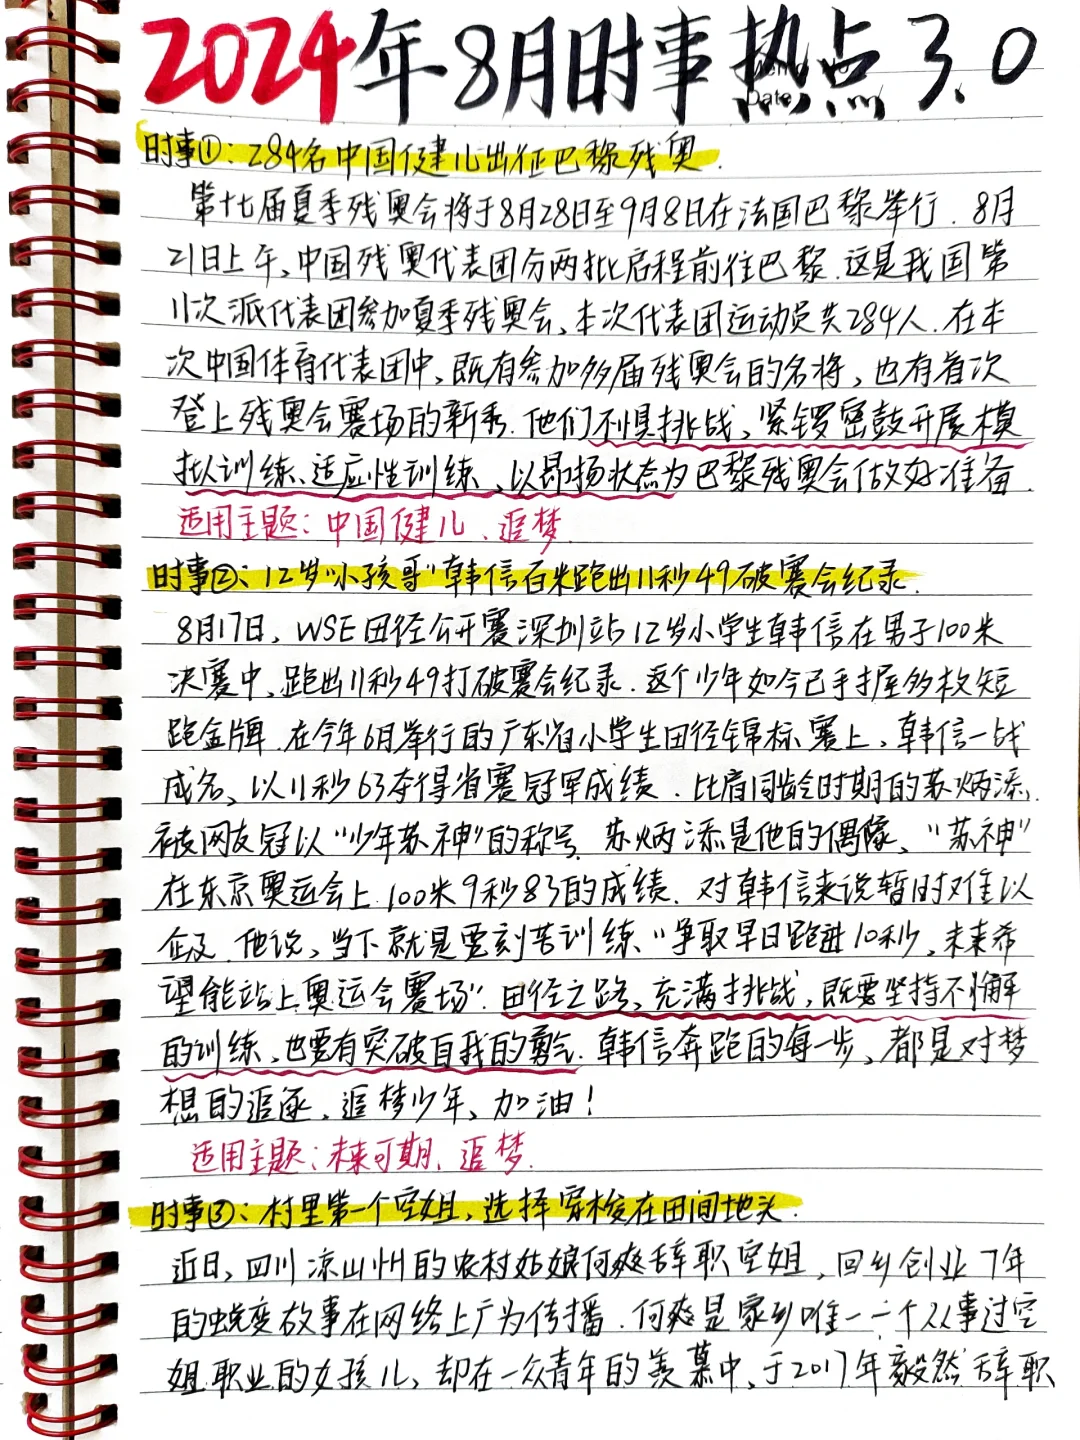 2024年8月时事热点3.0
时事①:284名中国健儿出征巴黎残奥.
第十七届夏季残奥会将于8月28日至9月8日在法国巴黎举行.8月
21日上午,中国残奥代表团分两批启程前往巴黎.这是我国第
11次派代表团参加夏季残奥会,本次代表团运动员共284人.在本
次中国体育代表团中,既有参加多届残奥会的名将,也有首次
登上残奥会赛场的新秀.他们不惧挑战,紧锣密鼓开展模
拟训练、适应性训练,以昂扬状态为巴黎残奥会做好准备.
适用主题:中国健儿、追梦
时事②:12岁"小孩哥"韩信百米跑出11秒49破赛会纪录.
8月17日,WSE田径公开赛深圳站12岁小学生韩信在男子100米
决赛中,跑出11秒49打破赛会纪录.这个少年如今已手握多枚短
跑金牌.在今年6月举行的广东省小学生田径锦标赛上,韩信一战
成名,以11秒63夺得省赛冠军成绩.比肩同龄时期的苏炳添,
被网友冠以"少年苏神"的称号.苏炳添是他的偶像,"苏神"
在东京奥运会上100米9秒83的成绩.对韩信来说暂时难以
企及.他说,当下就是要刻苦训练"争取早日跑进10秒,未来希
望能站上奥运会赛场".田径之路,充满挑战,既要坚持不懈
的训练,也要有突破自我的勇气.韩信奔跑的每一步,都是对梦
想的追逐,追梦少年,加油!
适用主题:未来可期、追梦.
时事③:村里第一个空姐,选择穿梭在田间地头.
近日,四川凉山州的农村姑娘何爽辞职空姐,回乡创业7年
的蜕变故事在网络上广为传播.何爽是家乡唯一一个从事过空
姐职业的女孩儿,却在一众青年的羡慕中,于2017年毅然辞职